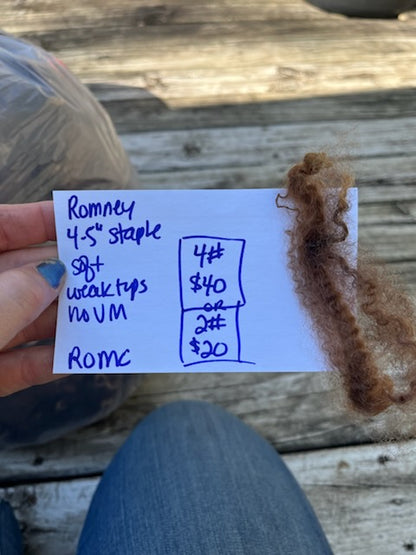 Romney
4-5" staple
soft
weak tips
no VM
ROMC
4#
$40
OR
2#
$20